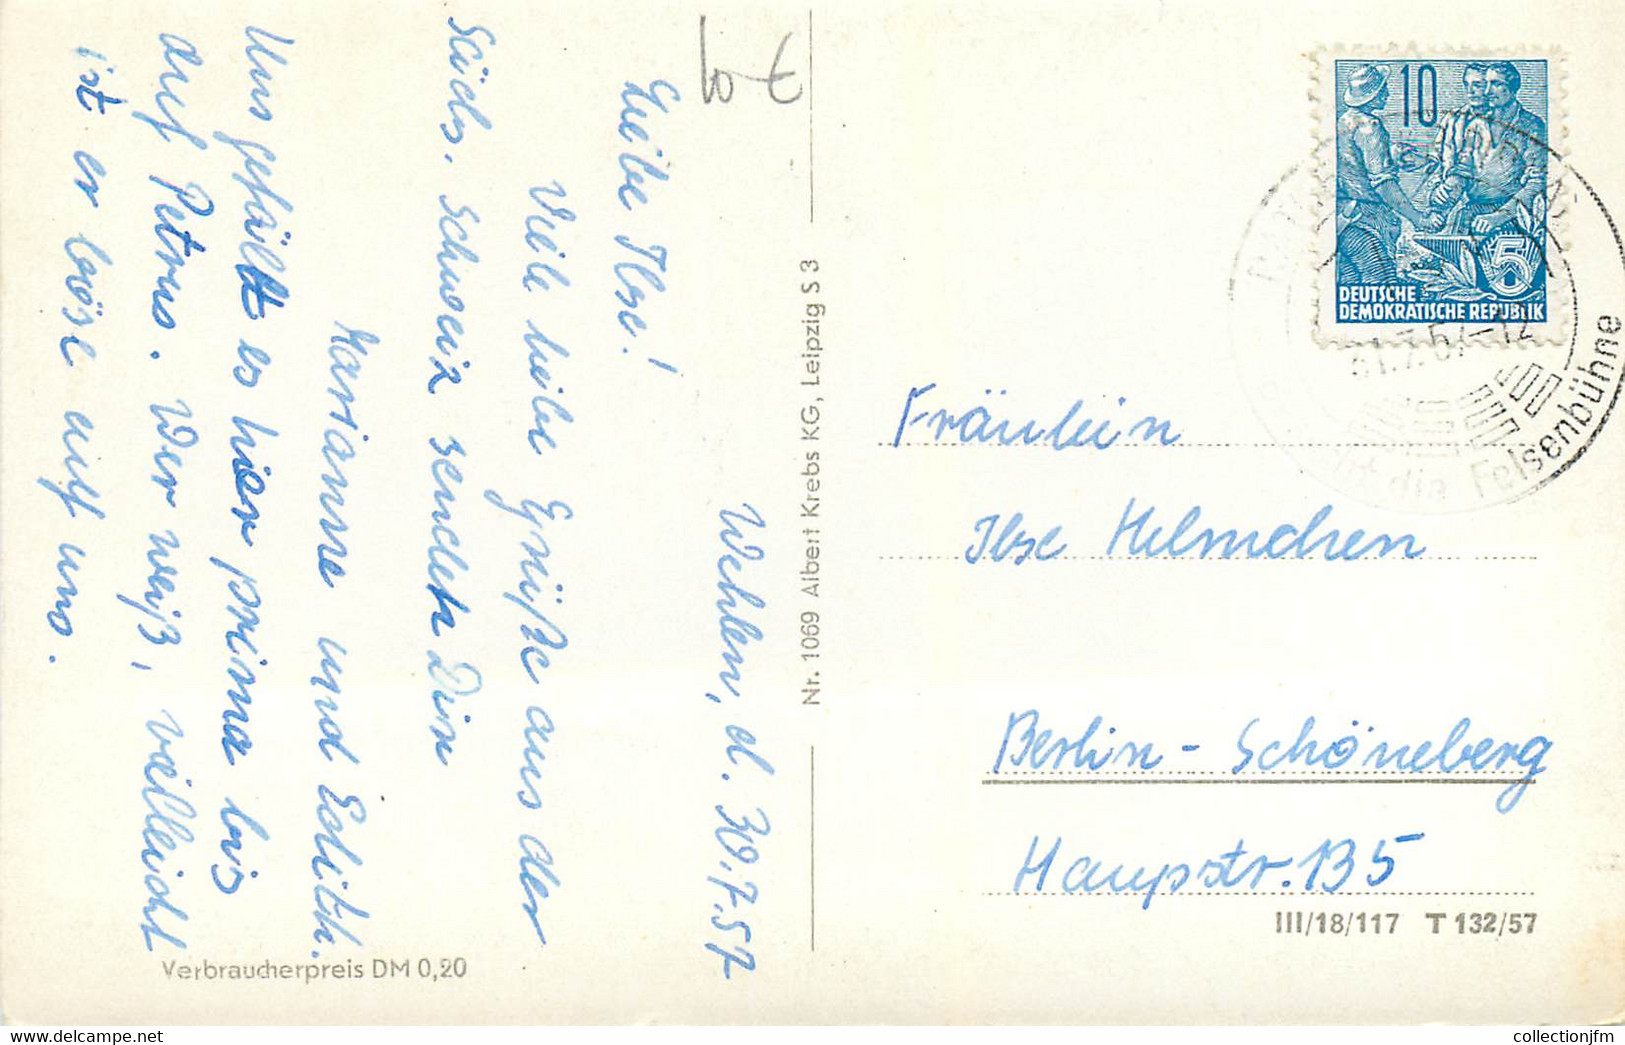 Wehlen, d. 30.7.57
Liebe Ilse!
Viele liebe Grüße aus der
Sächs. Schweiz senden Dir
Marianne und Edith.
Uns gefällt es hier prima bis
auf Petrus. Wer weiß, vielleicht
ist er böse auf uns.
Verbraucherpreis DM 0,20
Nr. 1069 Albert Krebs KG, Leipzig S 3
10
5
DEUTSCHE
DEMOKRATISCHE REPUBLIK
31.7.57-12
die Felsenbühne
Fräulein
Ilse Helmchen
Berlin - Schöneberg
Haupstr. 135
III/18/117 T 132/57
collectionjfm